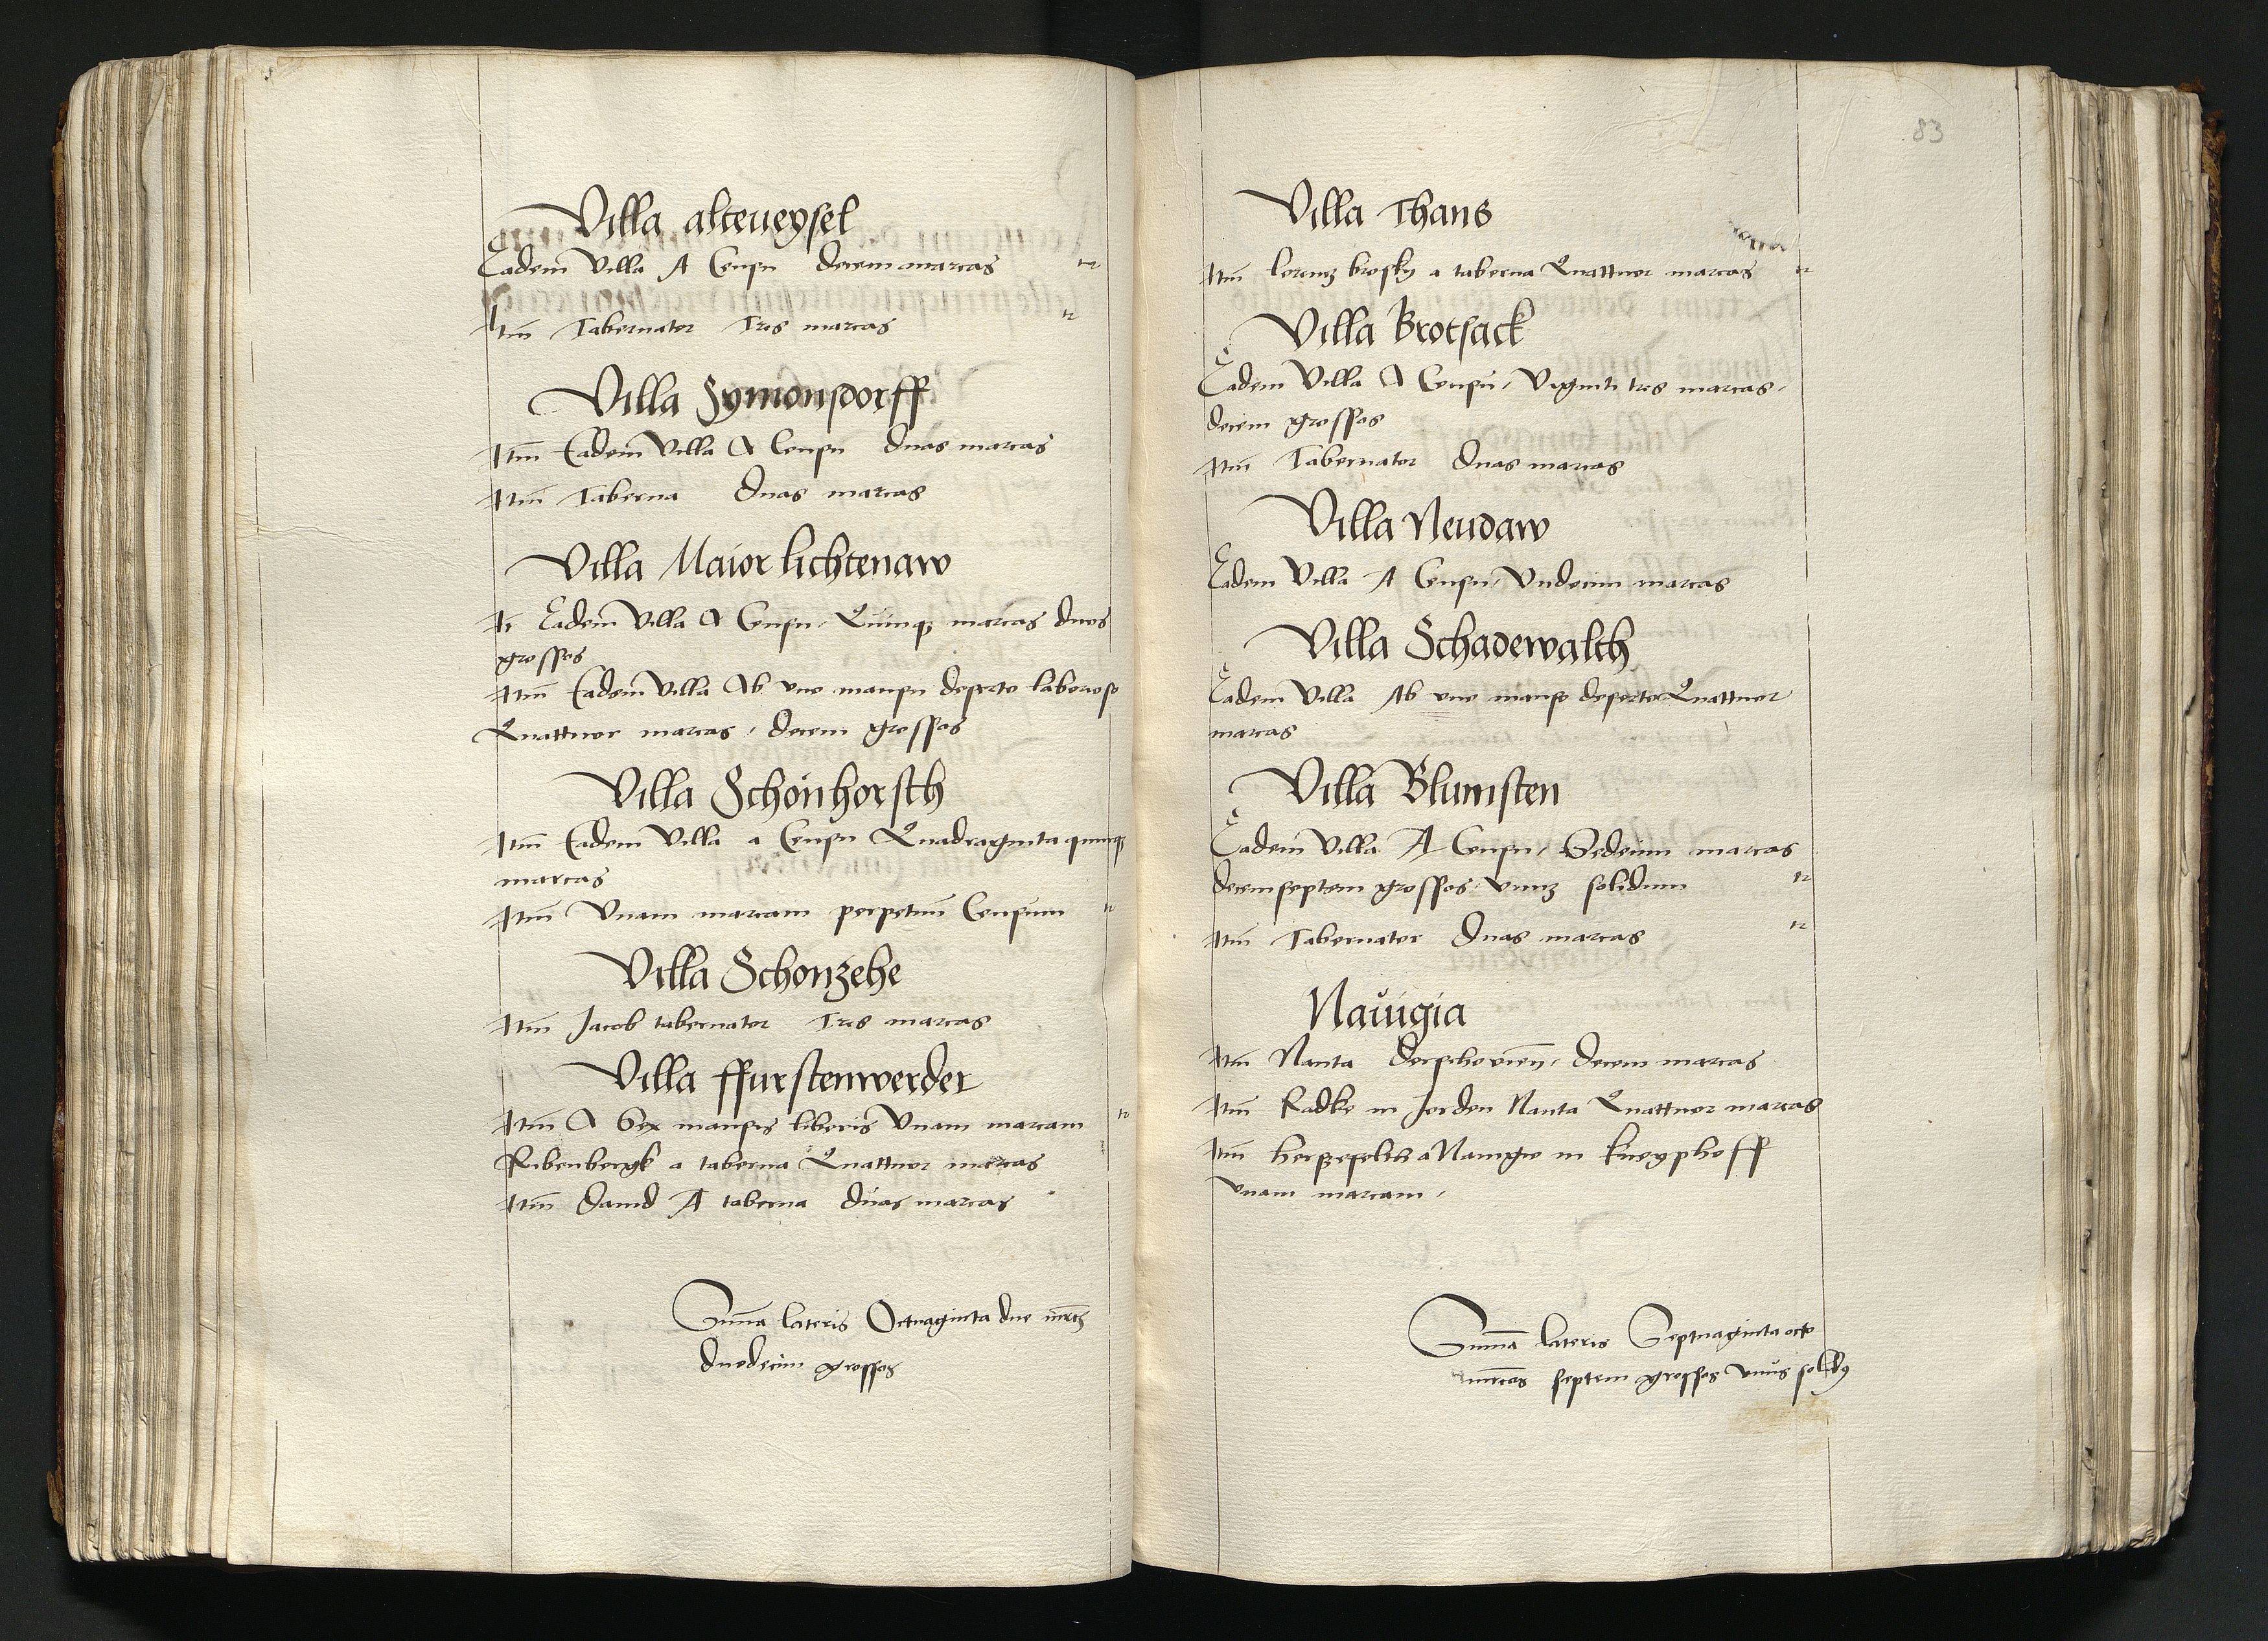 Villa alteweysel
Eadem Villa A Censu decem marcas tr
Itm Tabernator Tres marcas tr
Villa Symonsdorff
Itm Eadem Villa A Censu duas marcas
Itm Taberna duas marcas
Villa Maior lichtenaw
It Eadem Villa A Censu Quinq3 marcas duos
grossos
Itm Eadem Villa Ab vno mansu deserto laborioso
Quattuor marcas, decem grossos
Villa Schonhorsth
Itm Eadem Villa a Censu Quadraginta quinq3
marcas
Itm Vnam marcam perpetuu Censum tr
Villa Schonzehe
Itm Jacob tabernator Tres marcas
Villa ffurstenwerder
Itm A Sex mansis liberis Vnam marcam tr
Rubenbergk a taberna Quattuor marcas
Itm Dauid A taberna duas marcas
Suma lateris Octuaginta due mrc
duodecim grossos
83
Villa Thans
Itm lorencz brosky a taberna Quattuor marcas tr
Villa Brotsack
Eadem Villa A Censu, Viginti tres marcas,
decem grossos
Itm Tabernator duas marcas
Villa Neudaw
Eadem Villa A Censu, Vndecim marcas
Villa Schadewalth
Eadem Villa Ab vno manso deserto Quattuor
marcas
Villa Blumsten
Eadem Villa A Censu, Sedecim marcas
decemseptem grossos vnu3 solidum tr
Itm Tabernator Duas marcas tr
Nauigia
Itm Nauta decem marcas
Itm Radke in Jorden Nauta Quattuor marcas
Itm a Nauigio in kneyphoff
vnam marcam,
Suma lateris Septuaginta octo
mrcas septem grossos vnus solidus